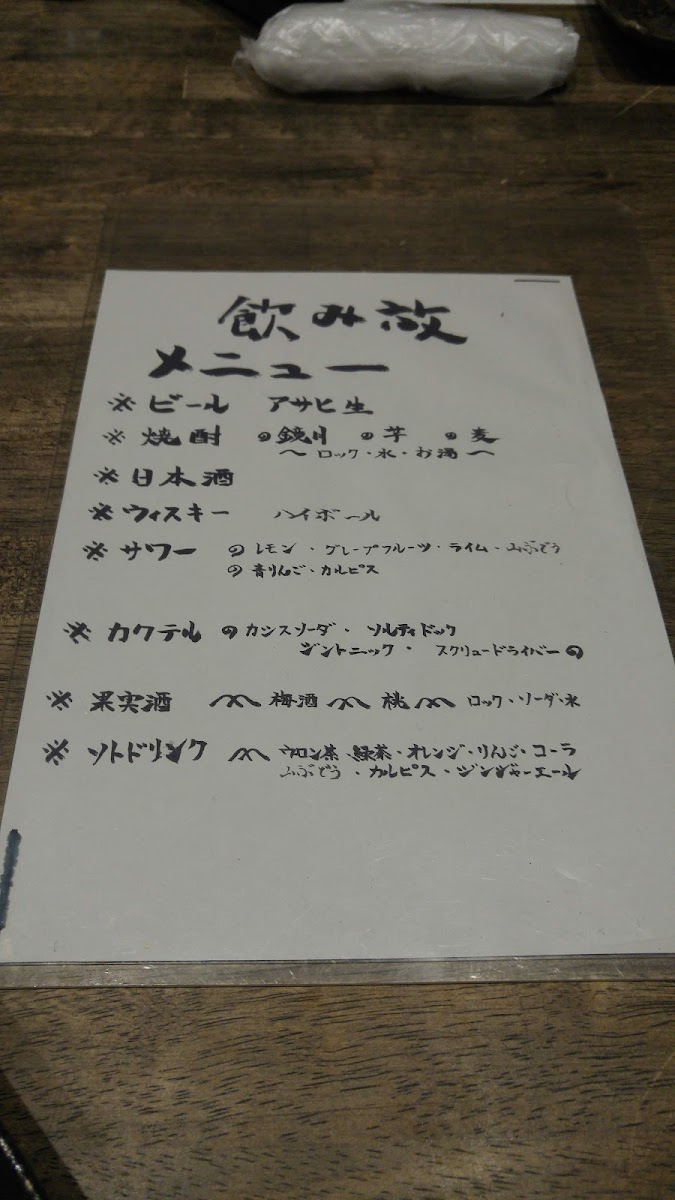 飲み放
メニュー
※ビール アサヒ生
※焼酎 の鏡月 の芋 の麦
〜ロック・水・お湯〜
※日本酒
※ウィスキー ハイボール
※サワー のレモン・グレープフルーツ・ライム・山ぶどう
の青りんご・カルピス
※カクテル のカシスソーダ・ソルティドック
ジントニック・スクリュードライバーの
※果実酒 梅酒 桃 ロック・ソーダ・水
※ソトドリンク ウーロン茶 緑茶・オレンジ・りんご・コーラ
山ぶどう・カルピス・ジンジャーエール